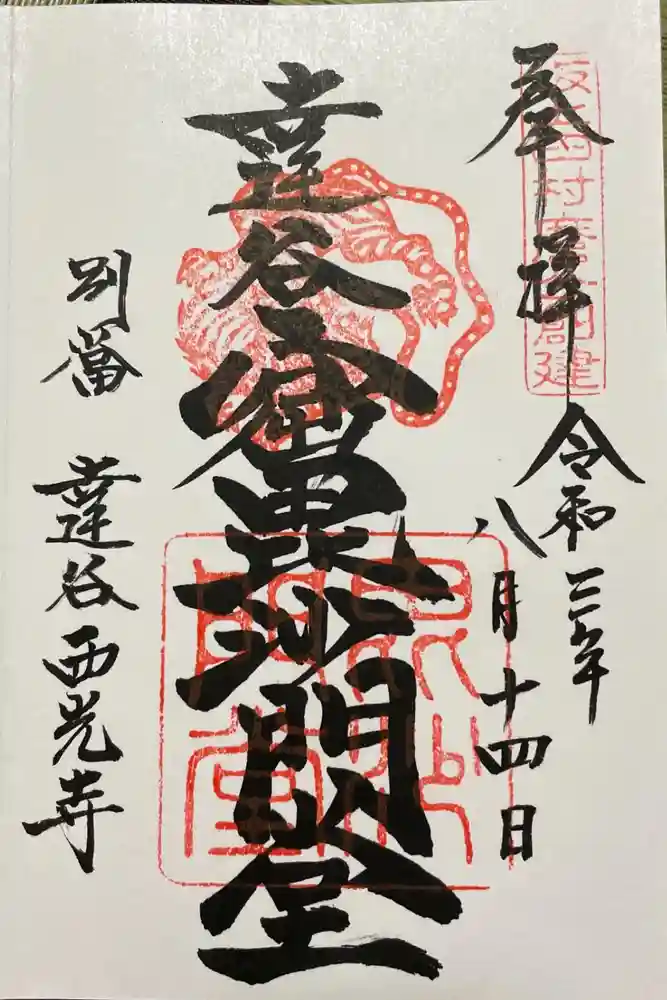 奉拝
坂上田村麿公創建
令和三年
八月十四日
達谷窟毘沙門堂
毘沙門堂
別當 達谷西光寺